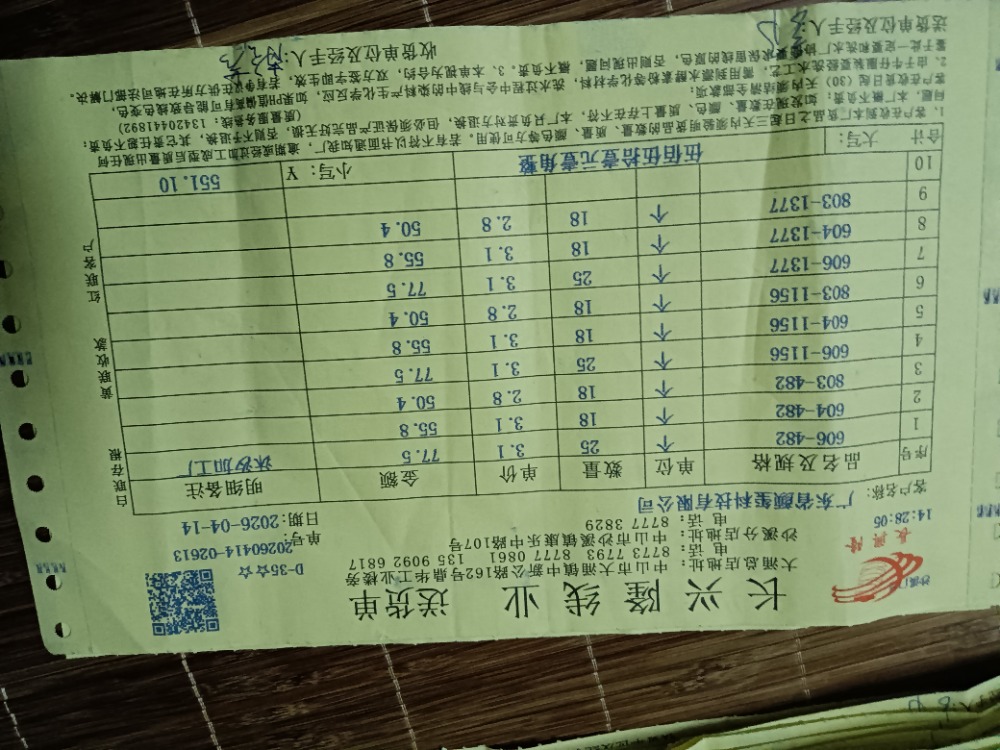 长兴隆线业 送货单
大涌总店地址: 中山市大涌镇中新公路鼎华工业楼旁
电 话: 8773 7793 8777 0861 135 9092 6817
沙溪分店地址: 中山市沙溪镇康乐中路107号
电 话: 8777 3829
长兴隆
14:28:05
D-35☆☆☆
单号: 20260414-02613
日期: 2026-04-14
客户名称: 广东省颜玺科技有限公司
序号 品名及规格 单位 数量 单价 金额 明细备注
1 606-482 个 25 3.1 77.5 沐沙加工厂
2 604-482 个 18 3.1 55.8
3 803-482 个 18 2.8 50.4
4 606-1156 个 25 3.1 77.5
5 604-1156 个 18 3.1 55.8
6 803-1156 个 18 2.8 50.4
7 606-1377 个 25 3.1 77.5
8 604-1377 个 18 3.1 55.8
9 803-1377 个 18 2.8 50.4
10
合计 大写: 伍佰伍拾壹元壹角整 小写: ¥ 551.10
白联存根 黄联收款 红联客户
1. 客户在收到本厂货品之日起三天内须验明货品的数量、质量、颜色等方可使用, 若有不符以书面通知我厂, 逾期或经过加工成型后质量出现任何
问题, 本厂概不负责, 如发现在数量、颜色、质量上存在不符, 本厂只负责对方退换, 但必须保证产品完好无损, 否则不予退换, 其它责任概不负责;
客户在收货日起(30)天内须结清全部款项;
(质量服务线: 13420441892)
2. 由于牛仔服装要经洗水工艺, 需用到漂水酵素粉等化学材料, 洗水过程中会与线中的染料产生化学反应, 如果PH值偏高有可能导致线色变色,
鉴于此一定要和洗水厂协调要求保留线的原色, 否则出现问题, 概不负责。3、本单视为合约, 双方签字即生效, 若有争议在供方所在地司法部门解决。
送货单位及经手人:
收货单位及经手人: